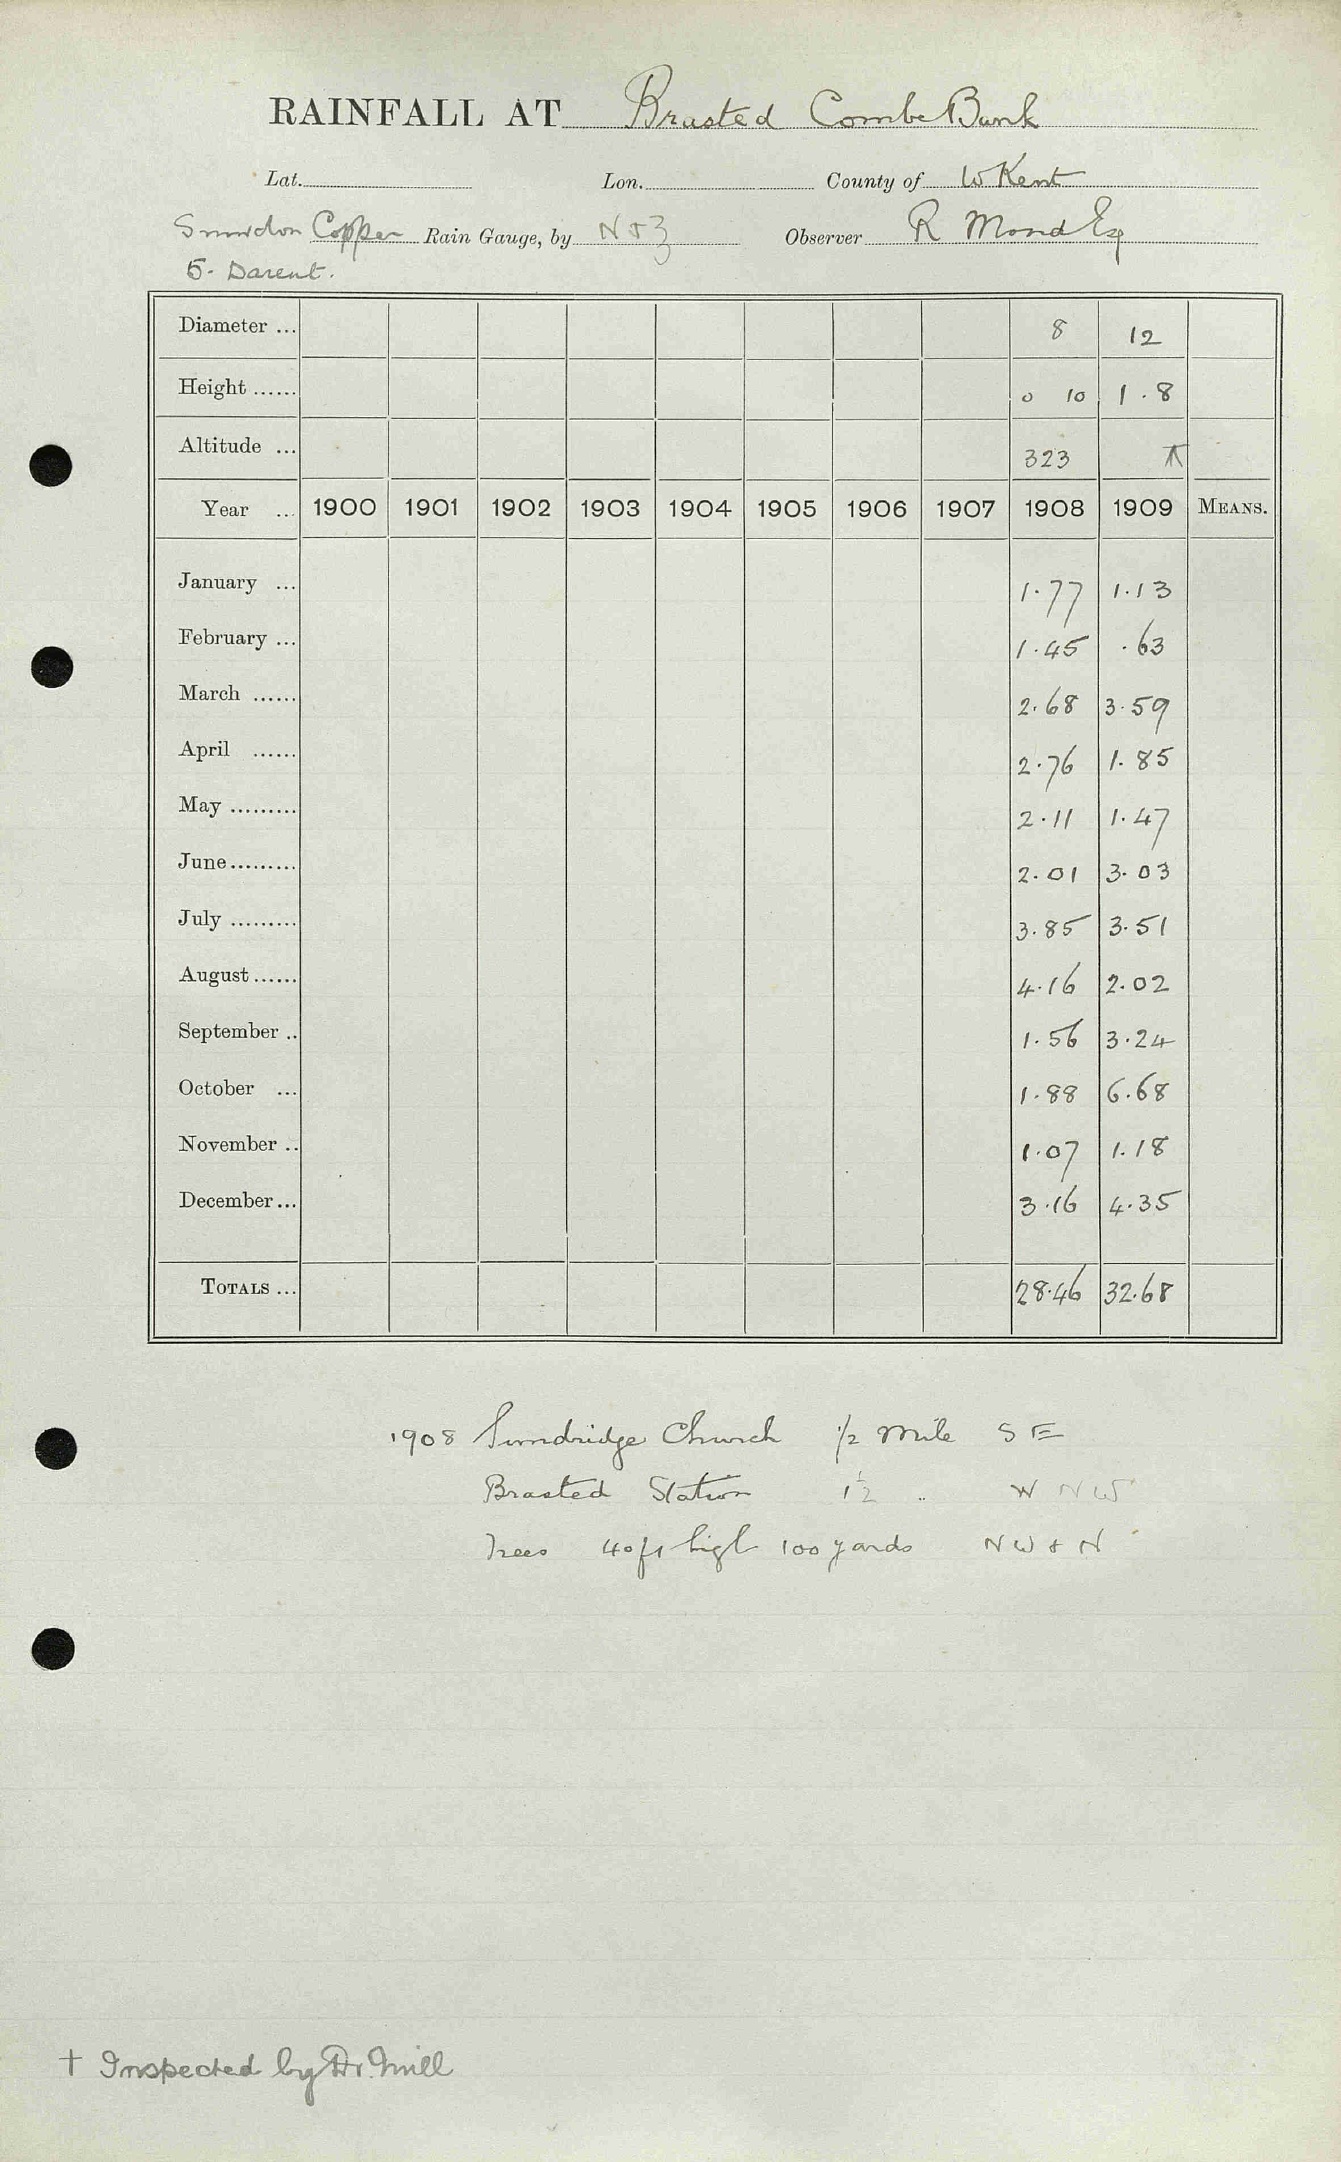 RAINFALL AT Brasted Combe Bank
Lat. Lon. County of W Kent
Snowdon Copper Rain Gauge, by N & Z Observer R Mond Esq
5. Darent.
Diameter ... 8 12
Height ...... 0 10 1.8
Altitude ... 323
Year ... 1900 1901 1902 1903 1904 1905 1906 1907 1908 1909 MEANS.
January ... 1.77 1.13
February ... 1.45 .63
March ...... 2.68 3.59
April ...... 2.76 1.85
May ......... 2.11 1.47
June......... 2.01 3.03
July ......... 3.85 3.51
August...... 4.16 2.02
September .. 1.56 3.24
October ... 1.88 6.68
November .. 1.07 1.18
December... 3.16 4.35
TOTALS ... 28.46 32.68
1908 Sundridge Church 1/2 Mile S E
Brasted Station 1 1/2 " W N W
Trees 40 ft high 100 yards N W & N
† Inspected by Dr. Mill